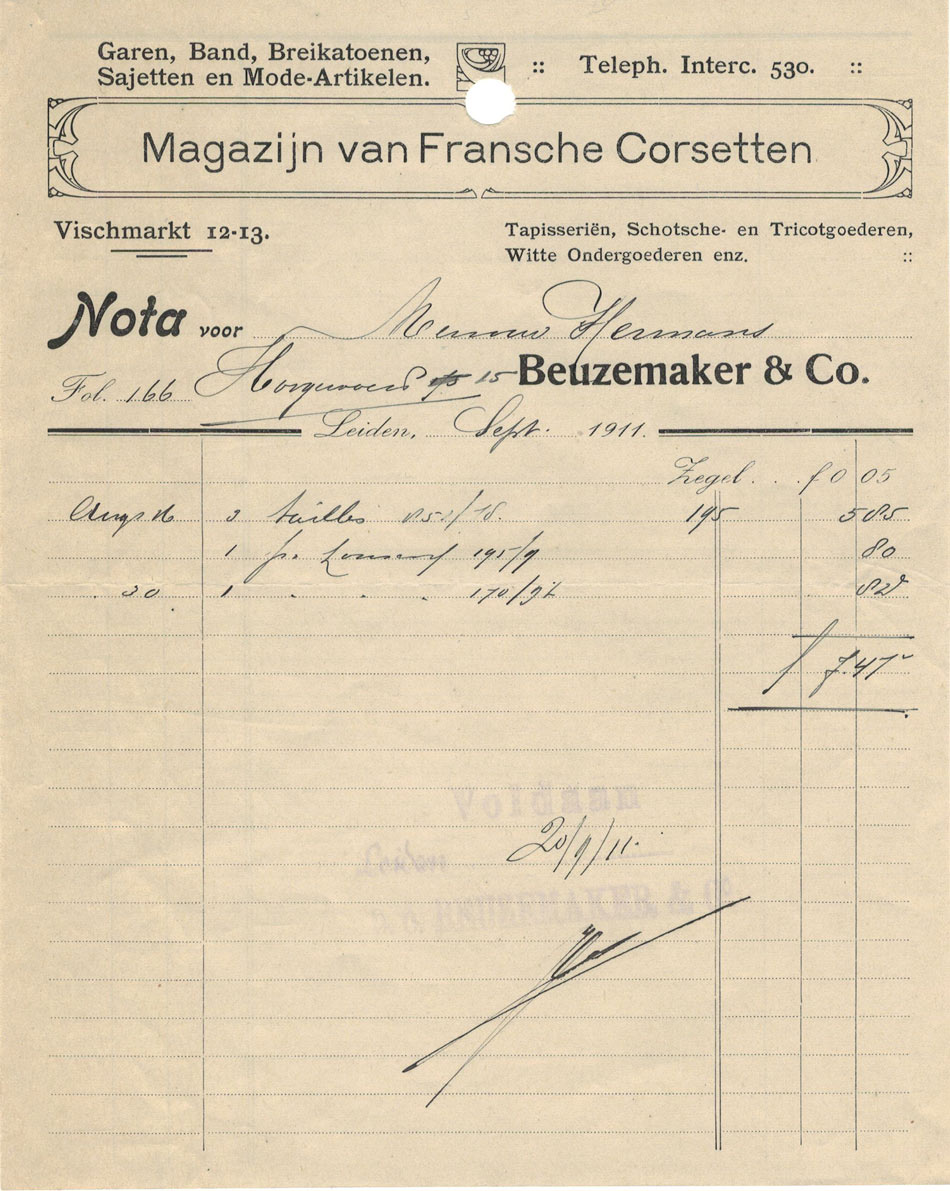 Garen, Band, Breikatoenen,
Sajetten en Mode-Artikelen.
:: Teleph. Interc. 530. ::
Magazijn van Fransche Corsetten
Vischmarkt 12-13.
Tapisseriën, Schotsche- en Tricotgoederen,
Witte Ondergoederen enz. ::
Nota voor Hermans
Fol. 166 15 Beuzemaker & Co.
Leiden, Sept. 1911.
Zegel . . f 0 05
3 tailles 195 5 85
1 195/9 80
30 1 " " " 170/ 82
f 7.47
20/9/11.
Voldaan
BEUZEMAKER & Co